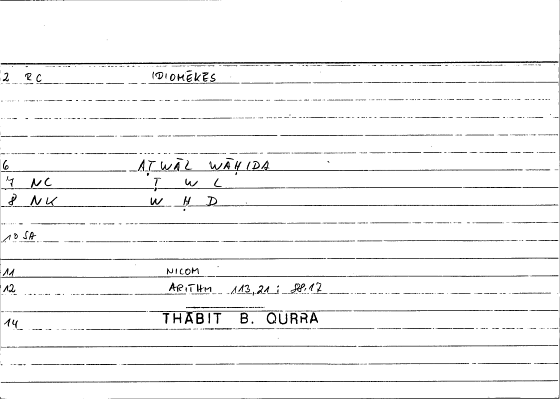 2 RC IDIOMĒKĒS
6 AṬWĀL WĀḤIDA
7 NC Ṭ W L
8 NK W Ḥ D
10 SA
11 NICOM
12 ARITHM 113,21 : 88.17
14 THĀBIT B. QURRA